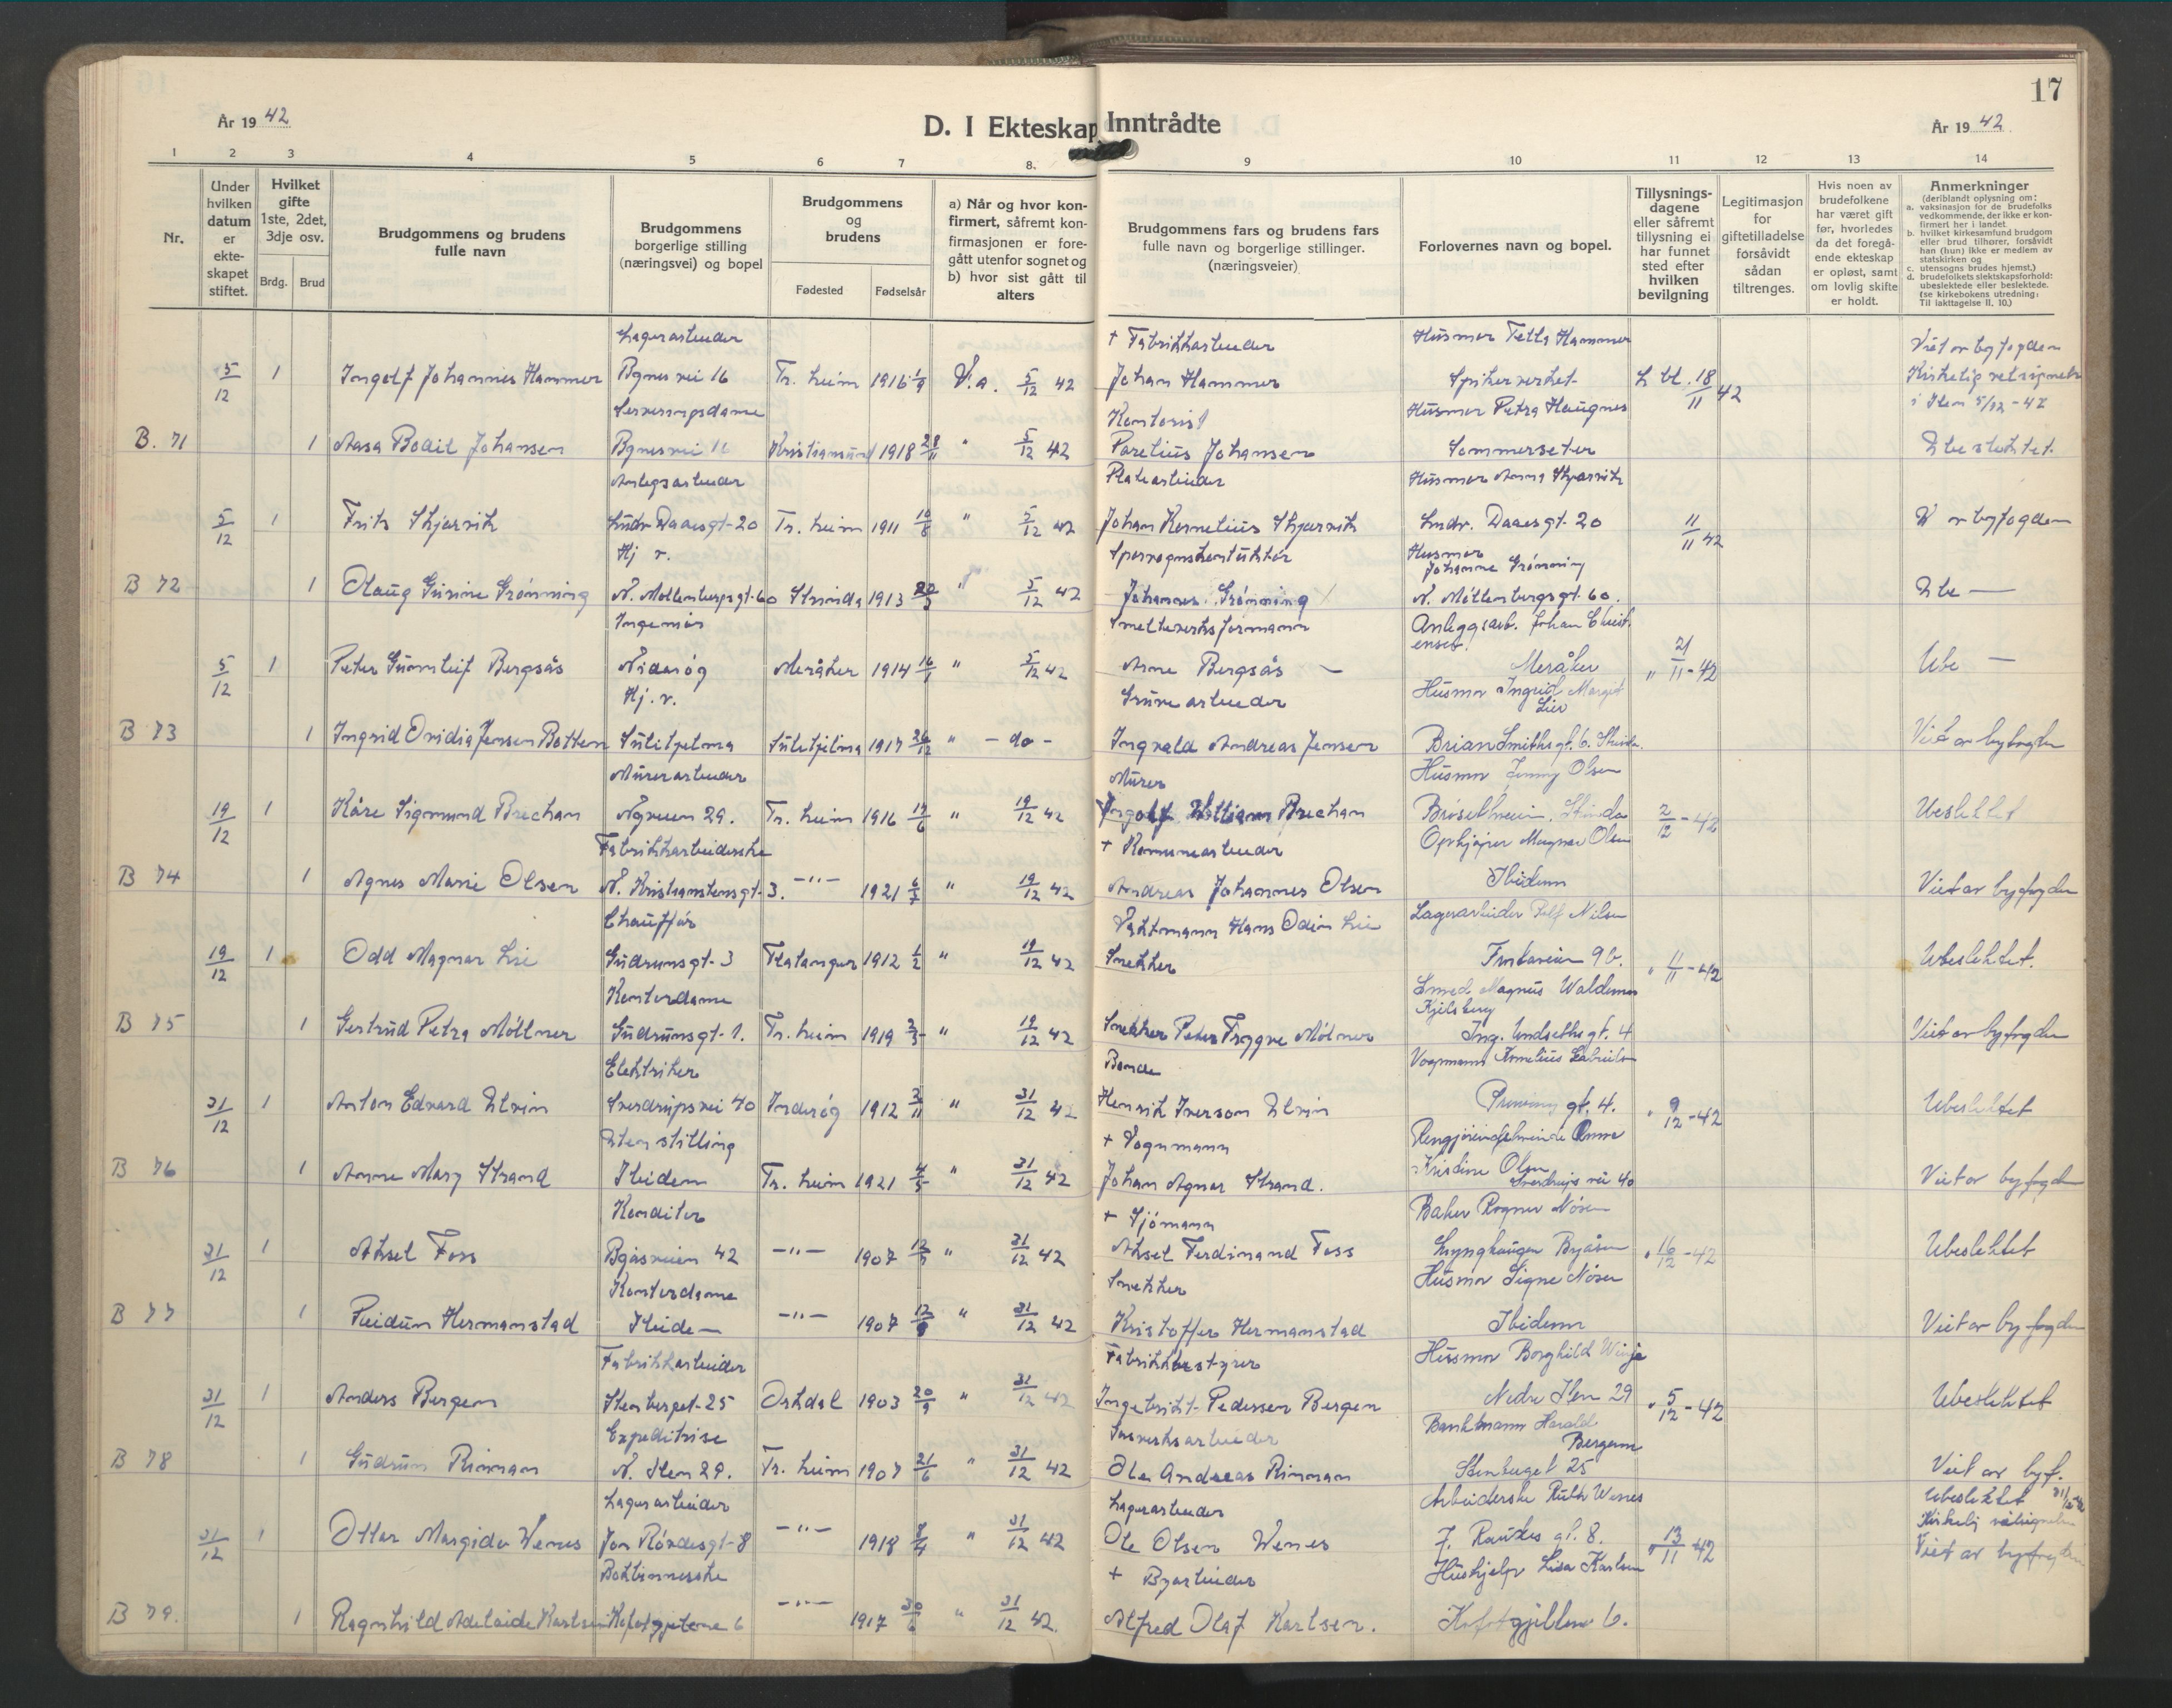 17
År 19 42
D. I Ekteskap Inntrådte
År 19 42
1 2 3 4 5 6 7 8. 9 10 11 12 13 14
Nr.
Under hvilken datum er ekte-skapet stiftet.
Hvilket gifte 1ste, 2det, 3dje osv.
Brdg. Brud
Brudgommens og brudens fulle navn
Brudgommens borgerlige stilling (næringsvei) og bopel
Brudgommens og brudens
Fødested Fødselsår
a) Når og hvor kon-firmert, såfremt kon-firmasjonen er fore-gått utenfor sognet og b) hvor sist gått til alters
Brudgommens fars og brudens fars fulle navn og borgerlige stillinger. (næringsveier)
Forlovernes navn og bopel.
Tillysnings-dagene eller såfremt tillysning ei har funnet sted efter hvilken bevilgning
Legitimasjon for giftetilladelse forsåvidt sådan tiltrenges.
Hvis noen av brudefolkene har været gift før, hvorledes da det foregå-ende ekteskap er opløst, samt om lovlig skifte er holdt.
Anmerkninger
(deriblandt oplysning om:
a. vaksinasjon for de brudefolks vedkommende, der ikke er kon-firmert her i landet.
b. hvilket kirkesamfund brudgom eller brud tilhører, forsåvidt han (hun) ikke er medlem av statskirken og
c. utensogns brudes hjemst.)
d. brudefolkets slektskapsforhold: ubeslektede eller beslektede.
(se kirkebokens utredning: Til iakttagelse II, 10.)
Lagerarbeider + Fabrikkarbeider Husmor Hammer
5/12 1 Ingolf Johannes Hammer Bynesvei 16 Tr. heim 1916 V.a. 5/12 42 Johan Hammer Spikerverket 18/11 42 Viet av byfogden
Serveringsdame Kontorist Husmor Petra Haugnes
B. 71 1 Aasa Bodil Johansen Bynesvei 16 Kristiansund 1918 28/11 " 5/12 42 Parelius Johansen Sommerseter Ubeslektet.
Anlegsarbeider Platearbeider Husmor Anna Skjærvik
5/12 1 Frits Skjærvik Lindv. Daaesgt 20 Tr. heim 1911 10/8 " 5/12 42 Johan Kornelius Skjærvik Lindv. Daaesgt. 20 11/11 42 V av byfogden
Hj v. Sporvognskonduktør Husmor Johanne Grønning
B 72 1 Olaug Grønning N. Møllenbergsgt. 60 Strinda 1913 " 5/12 42 Johannes Grønning N. Møllenbergsgt. 60. Ube —
Ingeniør Smelteverksformann Anleggsarb. Johan Christ-ensen.
5/12 1 Peter Gunnleif Bergsås Nidarøy Meråker 1914 " 5/12 42 Arne Bergsås Meråker " 21/11-42 Ube —
Hj. v. Gruvearbeider Husmor Ingrid Margit Liis
B 73 1 Ingrid Ovidia Jensen Botten Sulitjelma Sulitjelma 1917 26/12 " - do - Ingvald Andreas Jensen Brian Smithsgt. 6. Viet av byfogden
Murerarbeider Murer Husmor Jenny Olsen
19/12 1 Kåre Sigmund Brechan Tr. heim 1916 " 19/12 42 Ingolf William Brechan 2/12-42 Ubeslektet
Fabrikkarbeiderske + Komunearbeider Magnar Olsen
B 74 1 Agnes Marie Olsen N. Kristianstensgt. 3. -"- 1921 " 19/12 42 Andreas Johannes Olsen Ibidem Viet av byfogden
Chauffør Vaktmann Hans Odin Lie Lagerarbeider Rolf Nilsen
19/12 1 Odd Magnar Lie Gudrunsgt. 3 Flatanger 1912 1/2 " 19/12 42 Snekker 9b. " 11/11-42 Ubeslektet.
Kontordame Smed Magnus Waldemar Kjelsberg
B 75 1 Gertrud Petra Möllner Gudrunsgt. 1. Tr. heim 1919 " 19/12 42 Snekker Peter Trygve Mölner Ing. Undsethsgt. 4 Viet av byfogden
Elektriker Bonde Vognmann Kornelius Gabrielsen
31/12 1 Anton Edvard Ulvin Sverdrupsvei 40 Inderøy 1912 2/11 " 31/12 42 Henrik Iverson Ulvin gt. 4. " 9/12-42 Ubeslektet
Uten stilling + Vognmann
B 76 1 Anne Mary Strand Ibidem Tr. heim 1921 4/5 " 31/12 42 Johan Agnar Strand. Kristine Olsen Sverdrups vei 40 Viet av byfogden
Konditor + Sjømann Baker Ragnar Nösen
31/12 1 Aksel Foss Byåsveien 42 -"- 1907 " 31/12 42 Aksel Ferdinand Foss Lynghaugen Byåsen " 16/12-42 Ubeslektet
Kontordame Snekker Husmor Signe Nösen
B 77 1 Reidun Hermanstad Ibidem -"- 1907 " 31/12 42 Kristoffer Hermanstad Ibidem Viet av byfogden
Fabrikkarbeider Fabrikkbestyrer Husmor Borghild Winje
31/12 1 Anders Bergem Stenberget 25 Orkdal 1903 20/9 " 31/12 42 Ingebrikt Pedersen Bergem Nedre Ilen 29 " 5/12-42 Ubeslektet
Expeditrise Bankmann Harald Bergem
B 78 1 Gudrun Rinnan N. Ilen 29. Tr. heim 1907 21/6 " 31/12 42 Ole Andreas Rinnan Stenberget 25 Viet av byf.
Lagerarbeider Lagerarbeider Arbeiderske Ruth Wenes Ubeslektet
31/12 1 Ottar Margido Wenes Jon Rördesgt. 8 -"- 1918 " 31/12 42 Ole Olsen Wenes gt. 8. " 13/11 42 Kirkelig velsignelse
+ Byarbeider Hushjelp Lisa Karlsen Viet av byfogden
B 79. 1 Ragnhild Adelaide Karlsen 6 -"- 1917 30/6 " 31/12 42. Alfred Olaf Karlsen. 6.